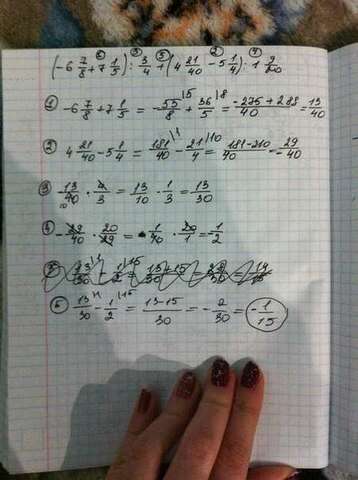 (-6 7/8 + 7 1/5) : 3/4 + (4 21/40 - 5 1/4) : 1 9/20
① -6 7/8 + 7 1/5 = -55/8 |5 + 36/5 |8 = -275+288/40 = 13/40
② 4 21/40 - 5 1/4 = 181/40 |1 - 21/4 |10 = 181-210/40 = -29/40
③ 13/40 · 4/3 = 13/10 · 1/3 = 13/30
④ -29/40 · 20/29 = -1/40 · 20/1 = -1/2
⑥ 13/30 |1 - 1/2 |15 = 13-15/30 = -2/30 = -1/15